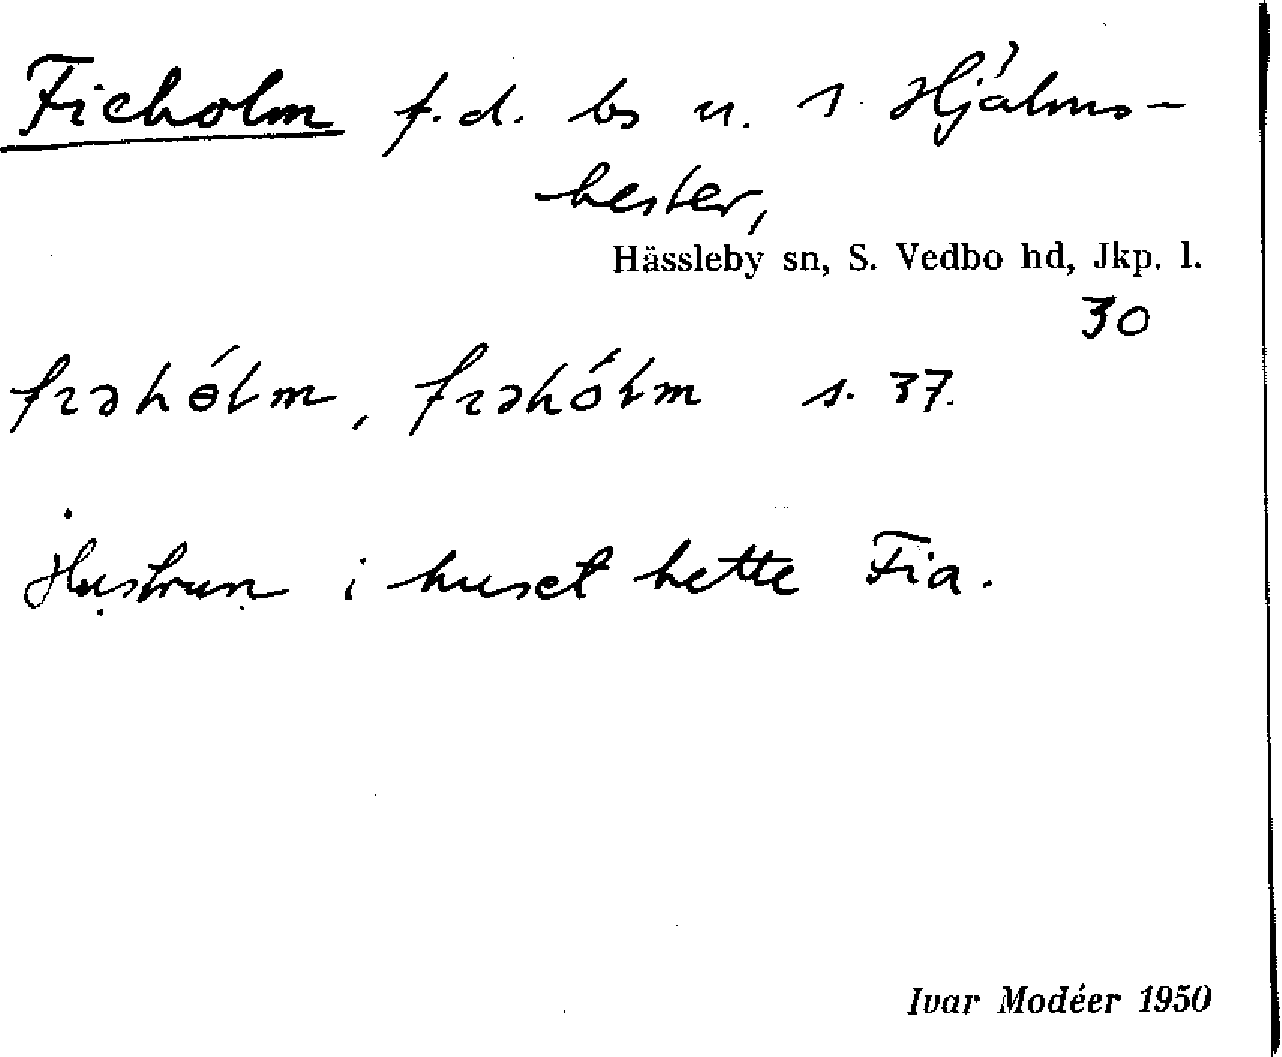 Fieholm f.d. bs u. s. Hjálms-
hester,
Hässleby sn, S. Vedbo hd, Jkp. l.
30
s. 37.
Hustrun i huset hette Fia.
Ivar Modéer 1950